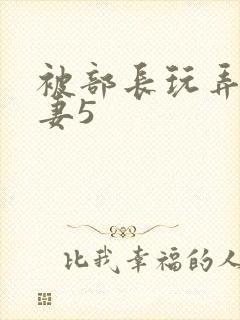 被部长玩弄
妻5
比我幸福的人